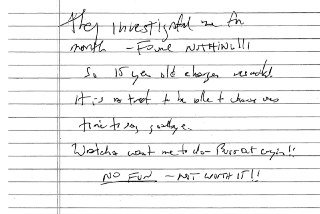 They investigated me for
month - Found NOTHING!!!
So 15 year old charges
It is a treat to be able to choose ones
time to say goodbye.
want me to do Burst out crying!!
NO FUN - NOT WORTH IT!!